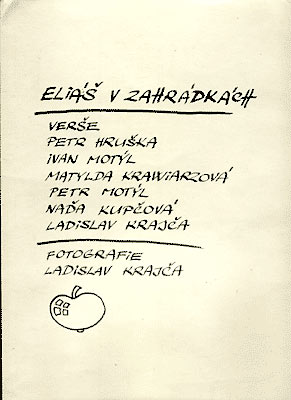 ELIÁŠ V ZAHRÁDKÁCH
VERŠE
PETR HRUŠKA
IVAN MOTÝL
MATYLDA KRAWIARZOVÁ
PETR MOTÝL
NAĎA KUPČOVÁ
LADISLAV KRAJČA
FOTOGRAFIE
LADISLAV KRAJČA